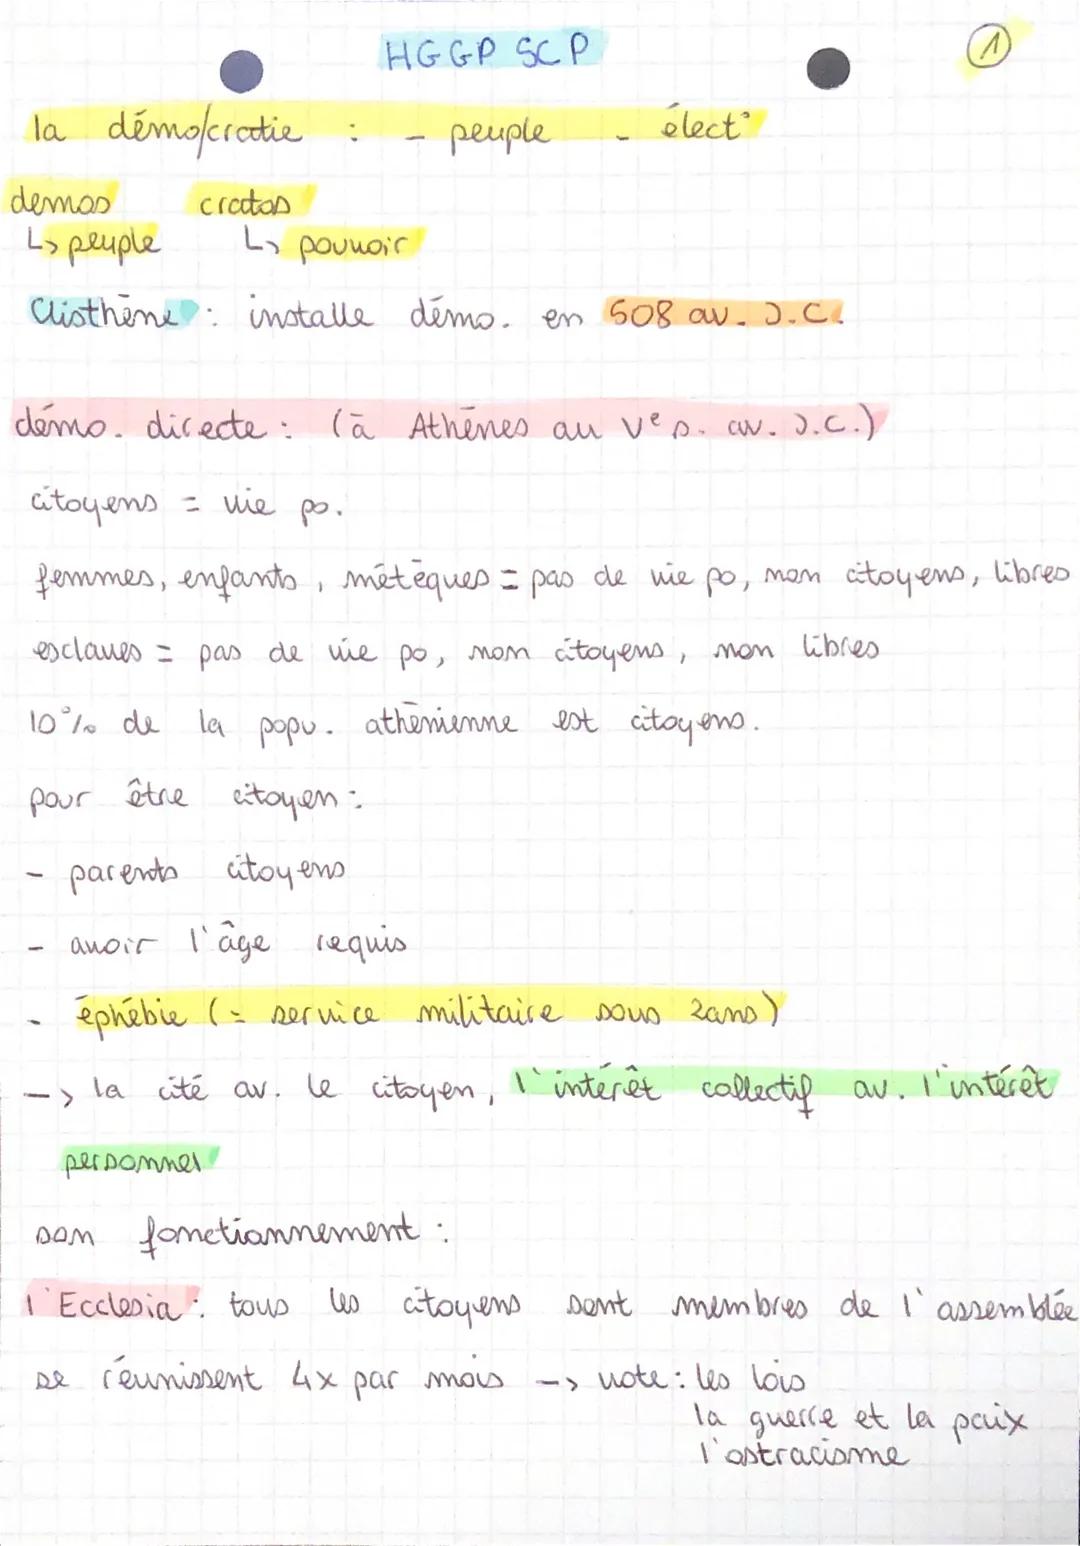 HGGP SCP
1
la démo/cratie : - peuple - élect°
demos cratos
↳ peuple ↳ pouvoir
Clisthène : installe démo. en 508 av. J.C.
démo. directe : (à Athènes au Ve s. av. J.C.)
citoyens = vie po.
femmes, enfants, métèques = pas de vie po, non citoyens, libres
esclaves = pas de vie po, non citoyens, non libres
10% de la popu. athénienne est citoyens.
pour être citoyen :
- parents citoyens
- avoir l'âge requis
- éphébie (= service militaire sous 2ans)
-> la cité av. le citoyen, l'intérêt collectif av. l'intérêt
personnel
son fonctionnement :
l'Ecclesia : tous les citoyens sont membres de l'assemblée
se réunissent 4x par mois -> vote : les lois
la guerre et la paix
l'ostracisme